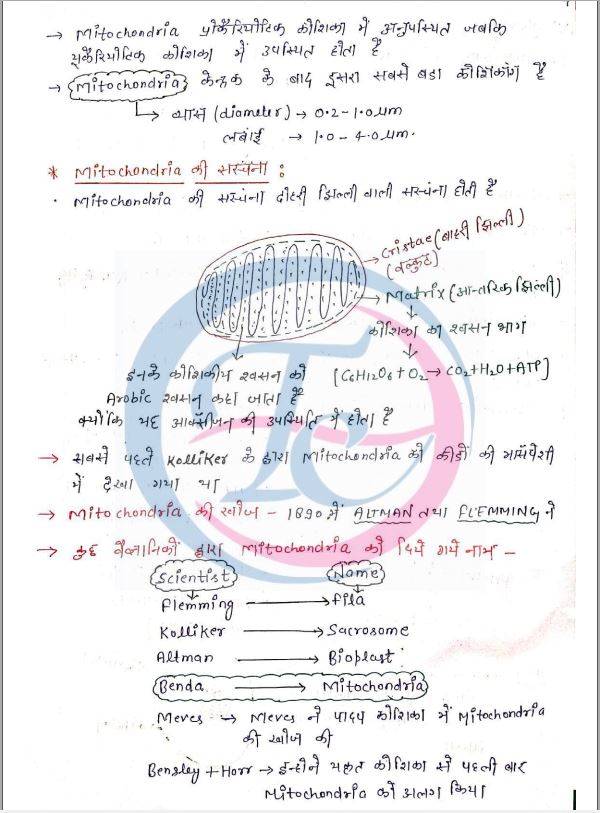 → Mitochondria प्रोकैरियोटिक कोशिका में अनुपस्थित जबकि
यूकैरियोटिक कोशिका में उपस्थित होता है
→ Mitochondria केन्द्रक के बाद दूसरा सबसे बडा कोशिकांग है
→ व्यास (diameter) → 0.2 - 1.0 μm
लंबाई → 1.0 - 4.0 μm.
* Mitochondria की सरंचना :
· Mitochondria की सरंचना दोहरी झिल्ली वाली सरंचना होती है
→ Cristae (बाहरी झिल्ली)
(वल्कुट)
→ Matrix (आन्तरिक झिल्ली)
कोशिका का श्वसन भाग
[C6H12O6 + O2 → CO2 + H2O + ATP]
इनके कोशिकीय श्वसन को
Arobic श्वसन कहा जाता है
क्योकि यह आक्सीजन की उपस्थिति में होता है
→ सबसे पहले Kolliker के द्वारा Mitochondria को कीडों की माँसपेशी
में देखा गया था
→ Mitochondria की खोज - 1890 में ALTMAN तथा FLEMMING ने
→ कुछ वैज्ञानिकों द्वारा Mitochondria को दिये गये नाम -
Scientist Name
Flemming → Fila
Kolliker → Sacrosome
Altman → Bioplast
Benda → Mitochondria
Meves → Meves ने पादप कोशिका में Mitochondria
की खोज की
Bensley + Horr → इन्होने यकृत कोशिका से पहली बार
Mitochondria को अलग किया